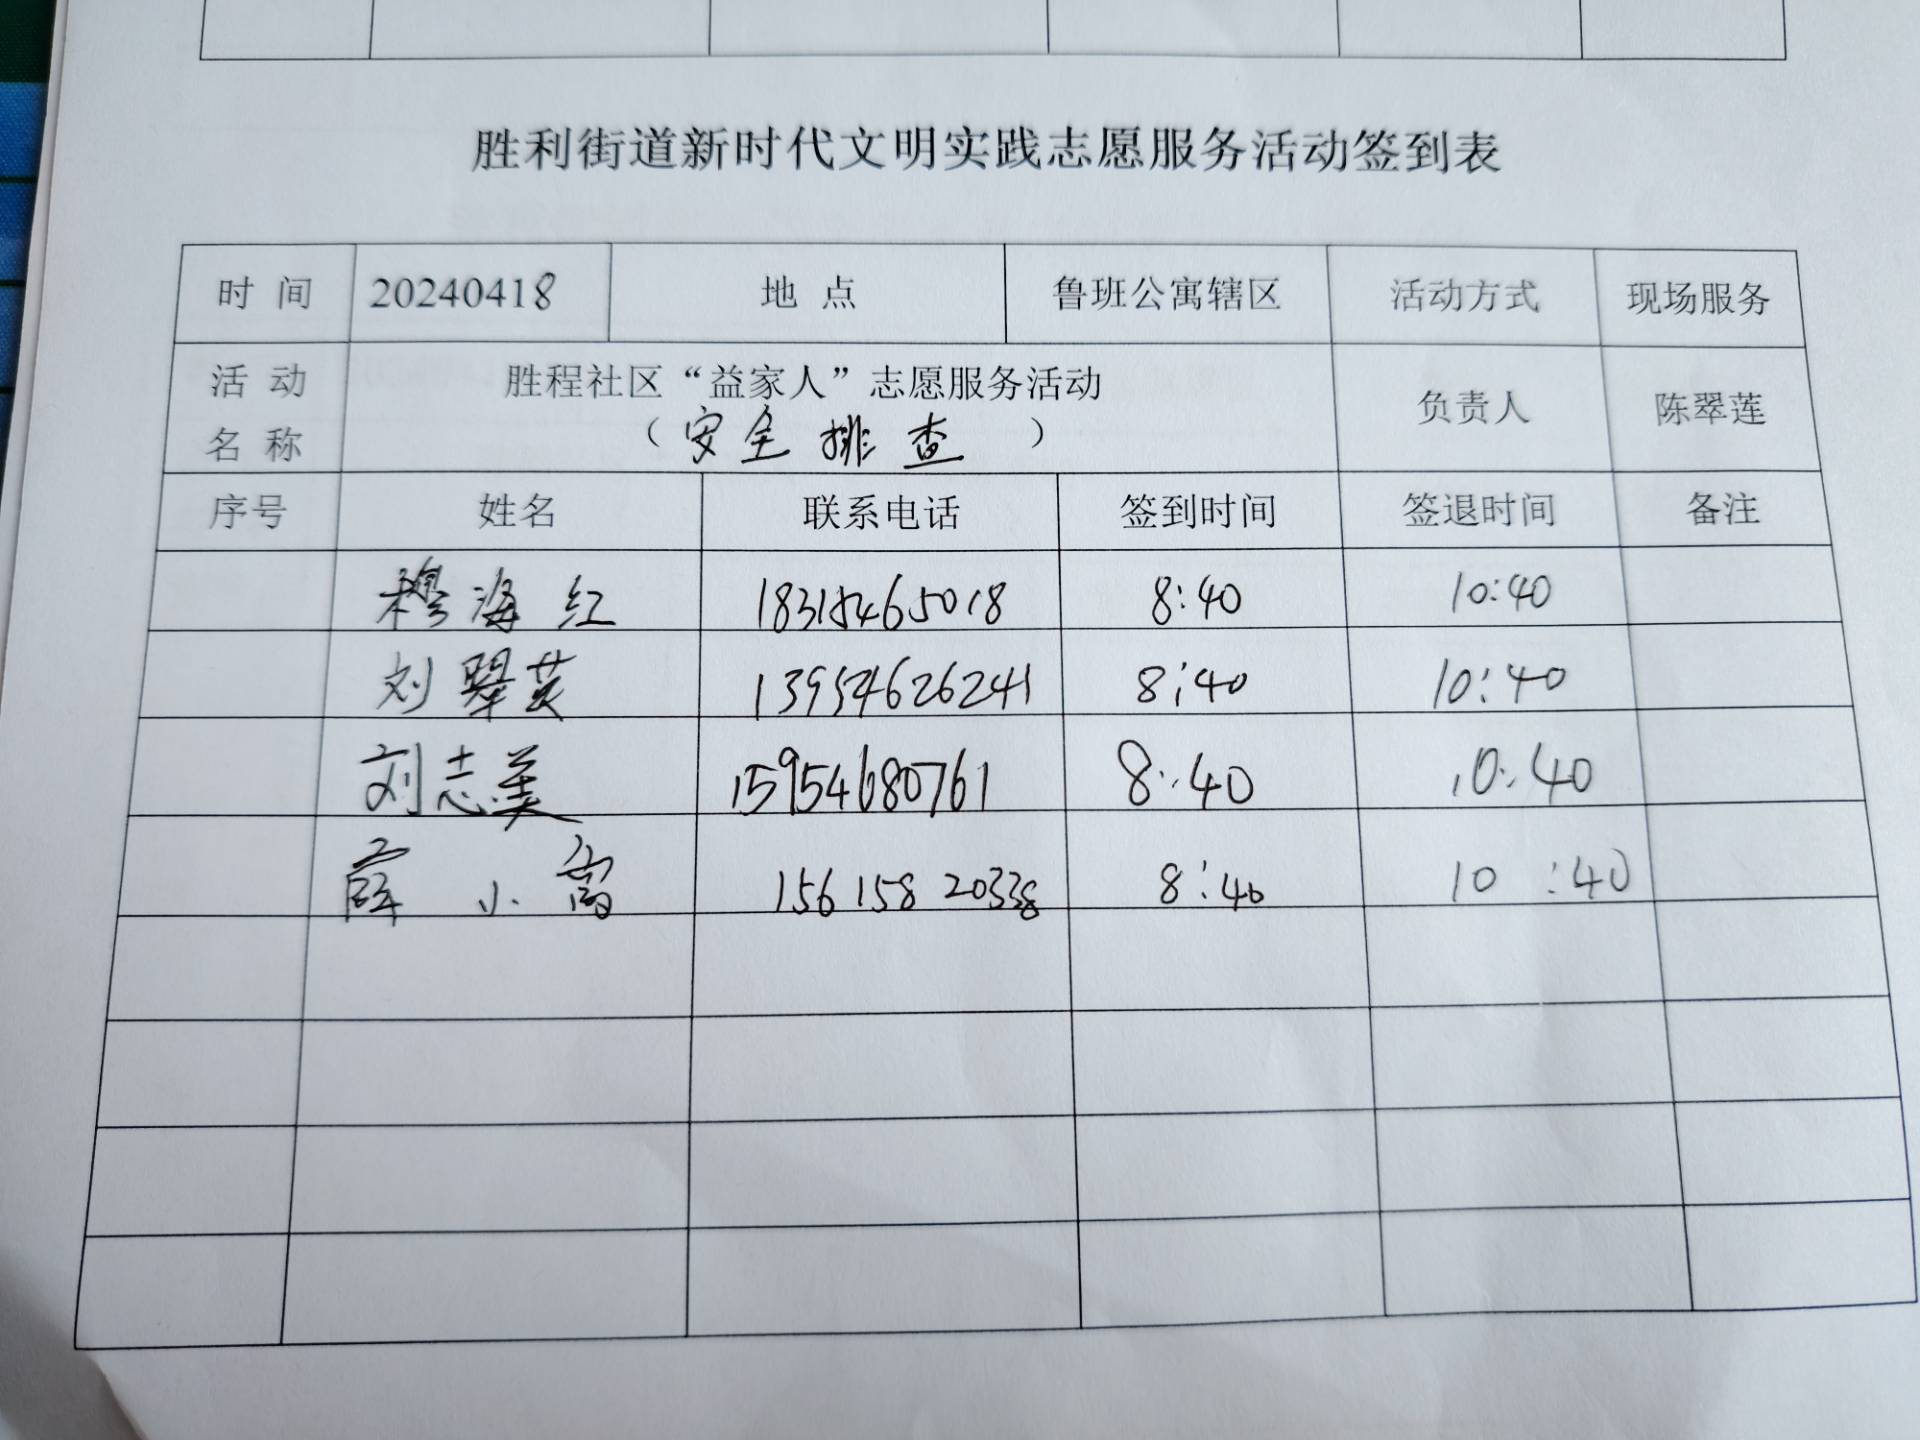 胜利街道新时代文明实践志愿服务活动签到表
时 间 20240418 地 点 鲁班公寓辖区 活动方式 现场服务
活 动 名 称 胜程社区“益家人”志愿服务活动 负责人 陈翠莲
（安全排查）
序号 姓名 联系电话 签到时间 签退时间 备注
穆海红 18315465018 8:40 10:40
刘翠英 13954626241 8:40 10:40
刘志美 15954680761 8:40 10:40
薛小富 156 158 20338 8:40 10:40